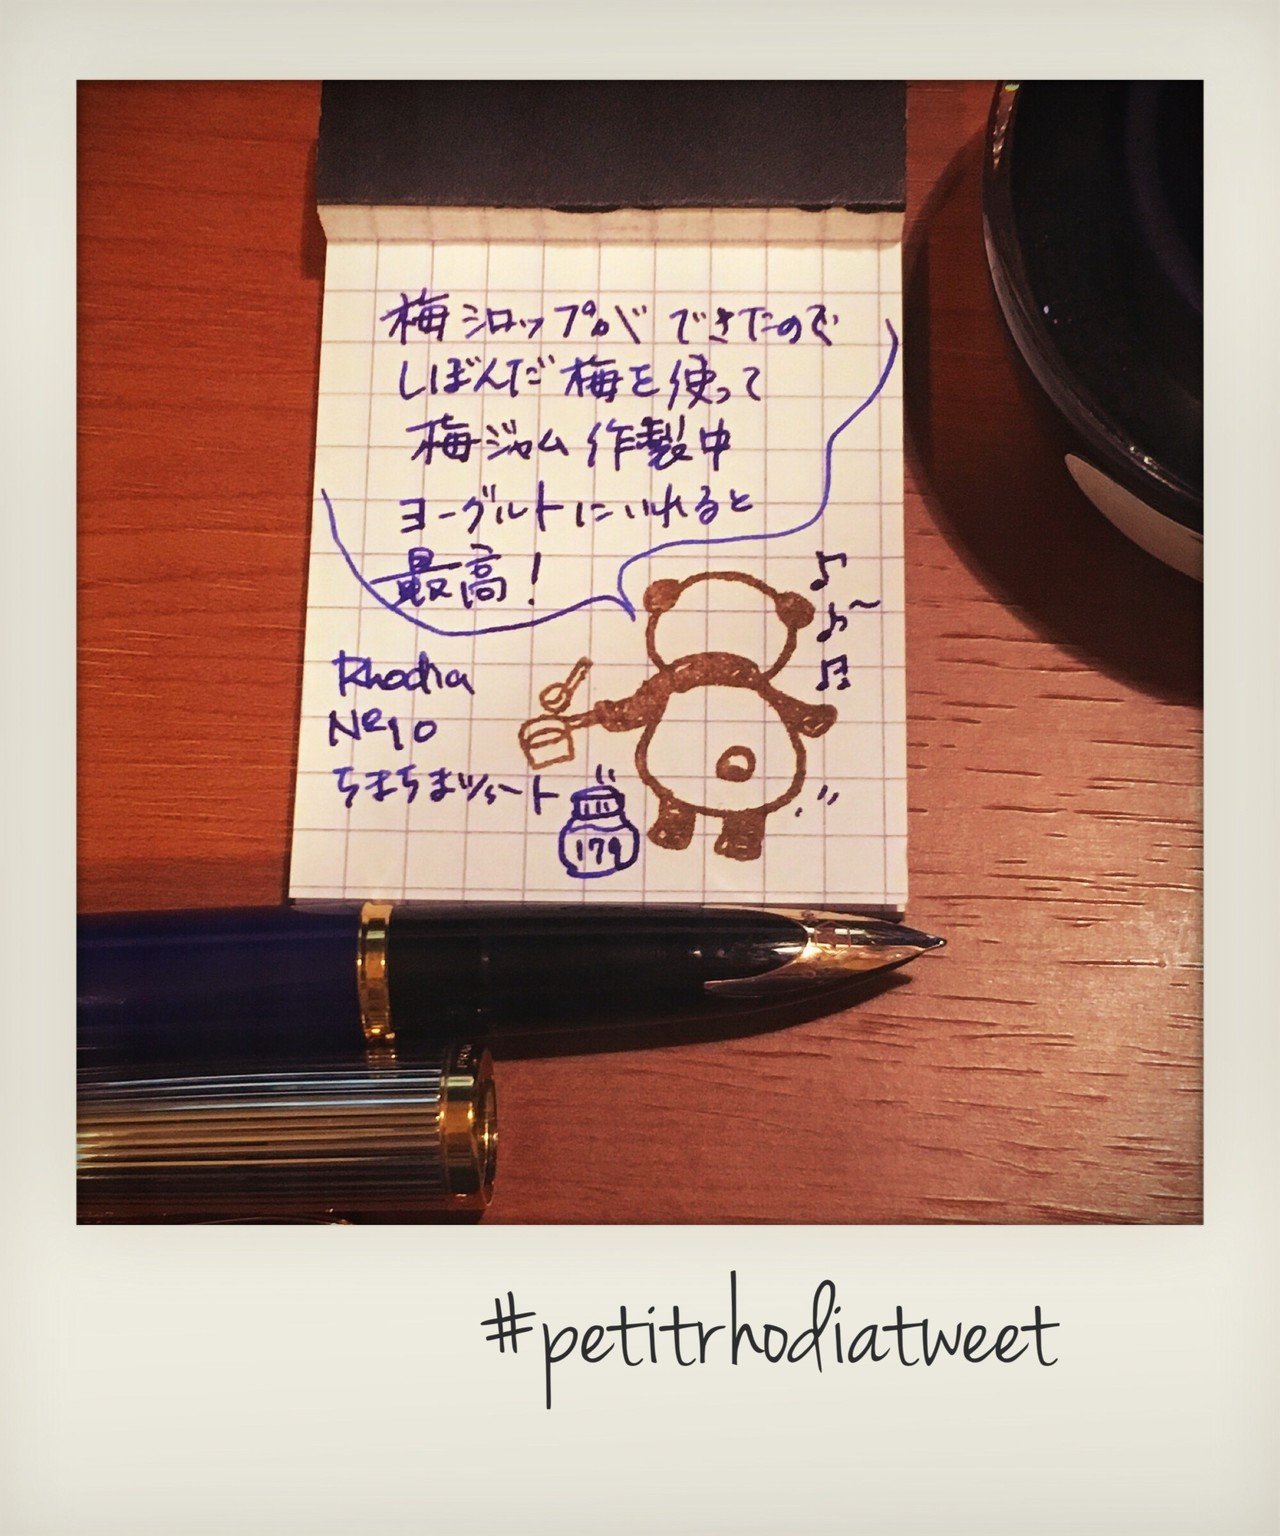 梅シロップが できたので
しぼんだ梅を使って
梅ジャム作製中
ヨーグルトにいれると
最高!
Rhodia
No10
ちまちまツイート
179
#petitrhodiatweet